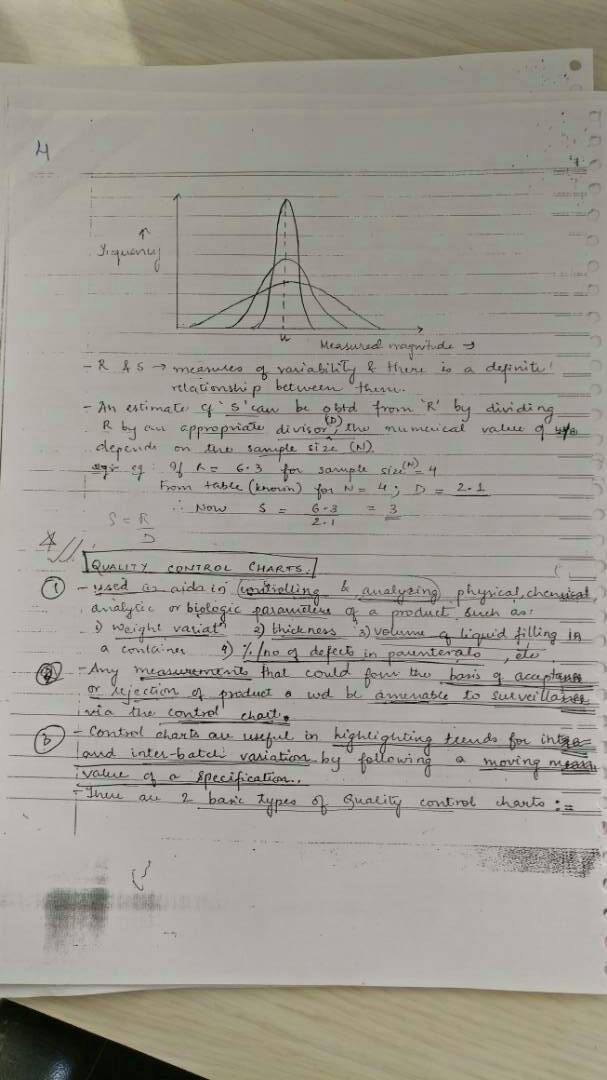 4
↑
Frequency
μ
Measured magnitude →
- R & S → measures of variability & there is a definite
relationship between them.
- An estimate of 'S' can be obtd from 'R' by dividing
R by an appropriate divisor (D), the numerical value of
depends on the sample size (N).
eg: If R = 6.3 for sample size (N) = 4
From table (known) for N = 4; D = 2.1
∴ Now S = 6.3/2.1 = 3
S = R/D
QUALITY CONTROL CHARTS.
① - used as aids in controlling & analyzing physical, chemical,
analytic or biologic parameters of a product such as:
1) weight variatn 2) thickness 3) volume of liquid filling in
a container 4) %/no of defects in parenterals, etc
② - Any measurements that could form the basis of acceptance
or rejection of product wd be amenable to surveillance
via the control chart.
③ - Control charts are useful in highlighting trends for intra
and inter-batch variation by following a moving mean
value of a specification.
- There are 2 basic types of Quality control charts :=